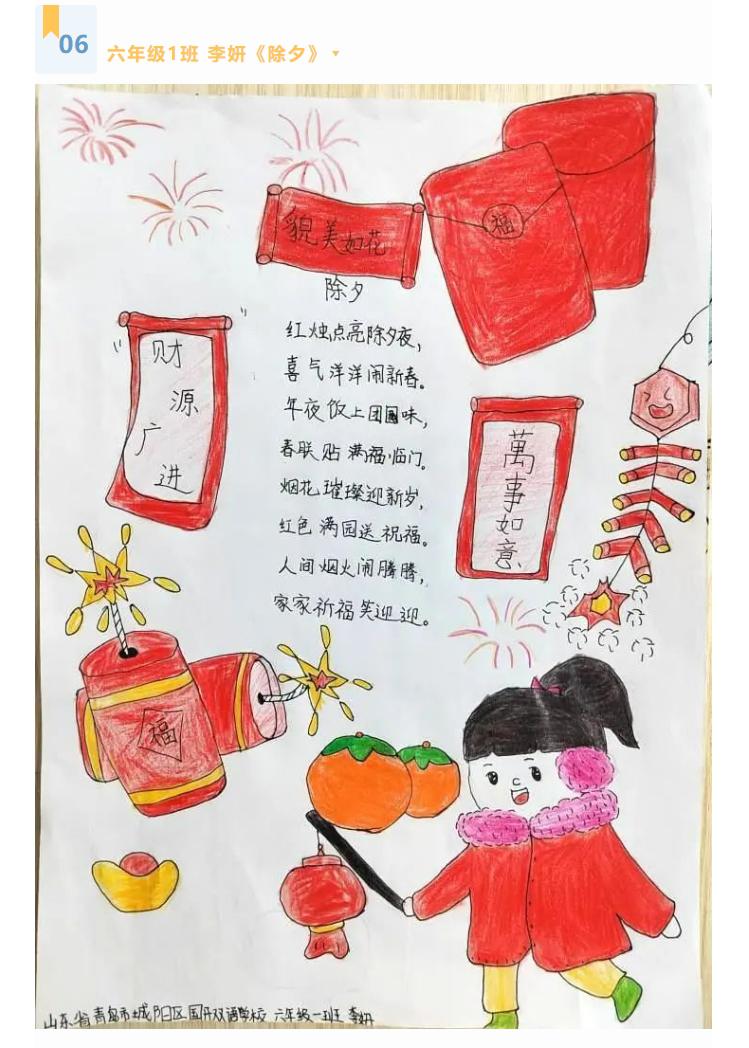 06
六年级1班 李妍《除夕》
福
貌美如花
除夕
红烛点亮除夕夜,
喜气洋洋闹新春。
年夜饭上团圆味,
春联贴满福临门。
烟花璀璨迎新岁,
红色满园送祝福。
人间烟火闹腾腾,
家家祈福笑迎迎。
财
源
广
进
萬
事
如
意
福
山东省青岛市城阳区国开双语学校 六年级一班 李妍